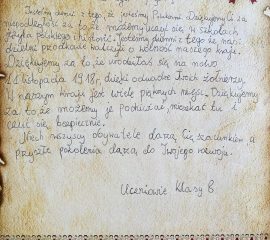 Jesteśmy dumni z tego, że jesteśmy Polakami. Dziękujemy Ci za
niepodległość, za to, że możemy uczyć się w szkołach
języka polskiego i historii. Jesteśmy dumni z tego, że nasi
dzielni przodkowie walczyli o wolność naszego kraju.
Dziękujemy za to, że urodziłaś się na nowo
11 listopada 1918r, dzięki odwadze Twoich żołnierzy.
W naszym kraju jest wiele pięknych miejsc. Dziękujemy
za to, że możemy je podziwiać, mieszkać tu i
czuć się bezpiecznie.
Niech wszyscy obywatele darzą Cię szacunkiem a
przyszłe pokolenia dążą do Twojego rozwoju.
Uczniowie klasy 6